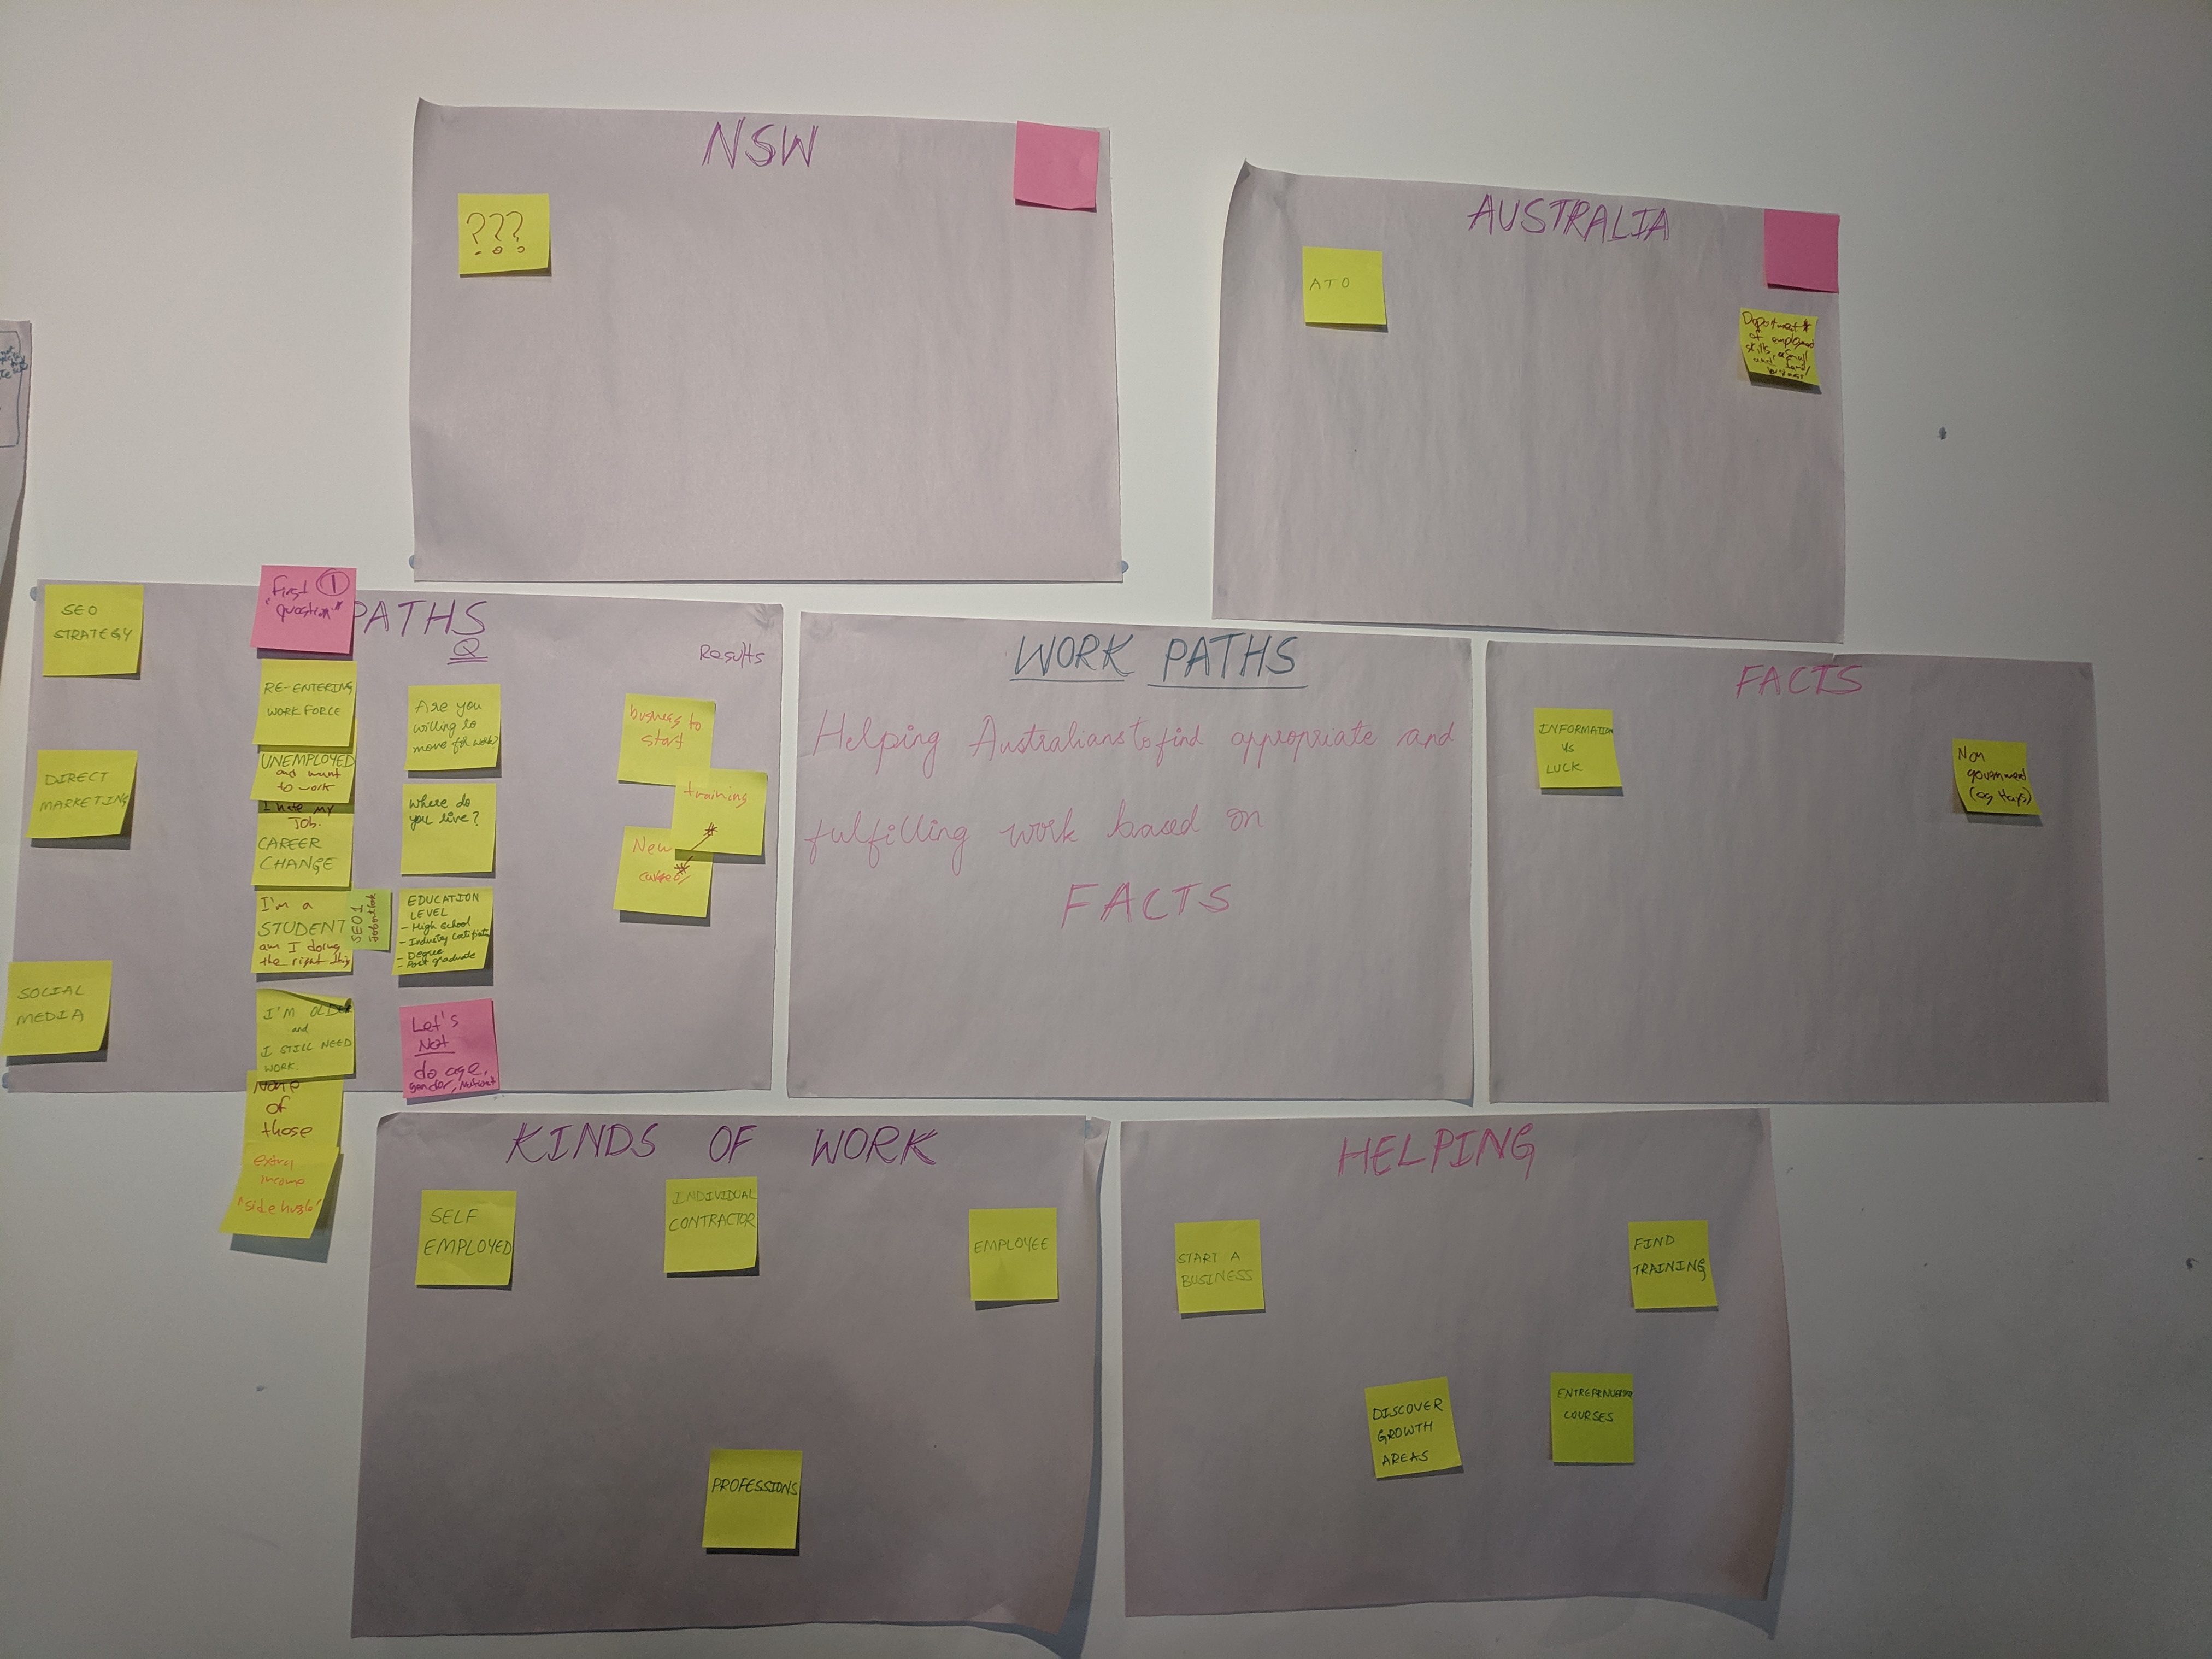 NSW
???
AUSTRALIA
ATO
Department
of employment
skills, small
and family
business
PATHS
Q
Results
SEO
STRATEGY
DIRECT
MARKETING
SOCIAL
MEDIA
First 1
"question"
RE-ENTERING
WORKFORCE
UNEMPLOYED
and want
to work
I hate my
JOB.
CAREER
CHANGE
I'm a
STUDENT
am I doing
the right thing
SEO1
I'M OLDER
and
I STILL NEED
WORK.
None
of
those
extra
income
"side hustle"
Are you
willing to
move for work?
Where do
you live?
EDUCATION
LEVEL
- High School
- Industry Certificate
- Degree
- Post graduate
Let's
Not
do age,
gender,
business to
start
training
New
career
WORK PATHS
Helping Australians to find appropriate and
fulfilling work based on
FACTS
FACTS
INFORMATION
VS
LUCK
Non
government
(eg Hays)
KINDS OF WORK
SELF
EMPLOYED
INDIVIDUAL
CONTRACTOR
EMPLOYEE
PROFESSIONS
HELPING
START A
BUSINESS
FIND
TRAINING
DISCOVER
GROWTH
AREAS
COURSES